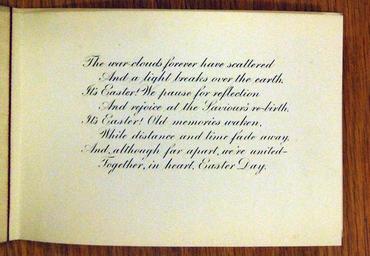 The war-clouds forever have scattered
And a light breaks over the earth.
It's Easter! We pause for reflection
And rejoice at the Saviour's re-birth.
It's Easter! Old memories waken,
While distance and time fade away.
And, although far apart, we're united-
Together, in heart, Easter Day.